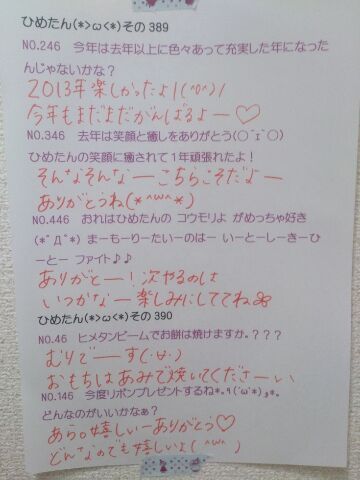 ひめたん(*>ω<*)その389
NO.246　今年は去年以上に色々あって充実した年になった
んじゃないかな？
2013年楽しかったよ!(^o^)!
今年もまだまだがんばるよー♡
NO.346　去年は笑顔と癒しをありがとう(○´ｪ`○)
ひめたんの笑顔に癒されて1年頑張れたよ！
そんなそんなーこちらこそだよー
ありがとうね(*^ω^*)
NO.446　おれはひめたんの コウモリよ がめっちゃ好き
(*ﾟДﾟ*) まーもーりーたいーのはー いーとーしーきーひ
ーとー ファイト♪♪
ありがとー！次やるのは
いつかなー楽しみにしててね
ひめたん(*>ω<*)その390
NO.46　ヒメタンビームでお餅は焼けますか。？？？
むりでーす(·ω·)
おもちはあみで焼いてくださーい
NO.146　今度リボンプレゼントするね*｡٩(´ω`*)و*｡
どんなのがいいかなぁ？
あら。嬉しいーありがとう♡
どんなのでも嬉しいよ(^ω^)